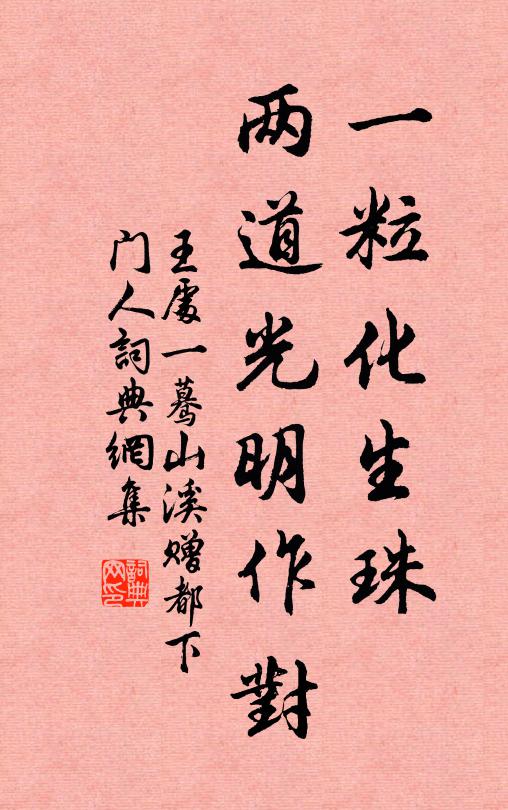 一粒化生珠
两道光明作對
王處一蓦山溪赠都下
门人詞典網集
詞典网印